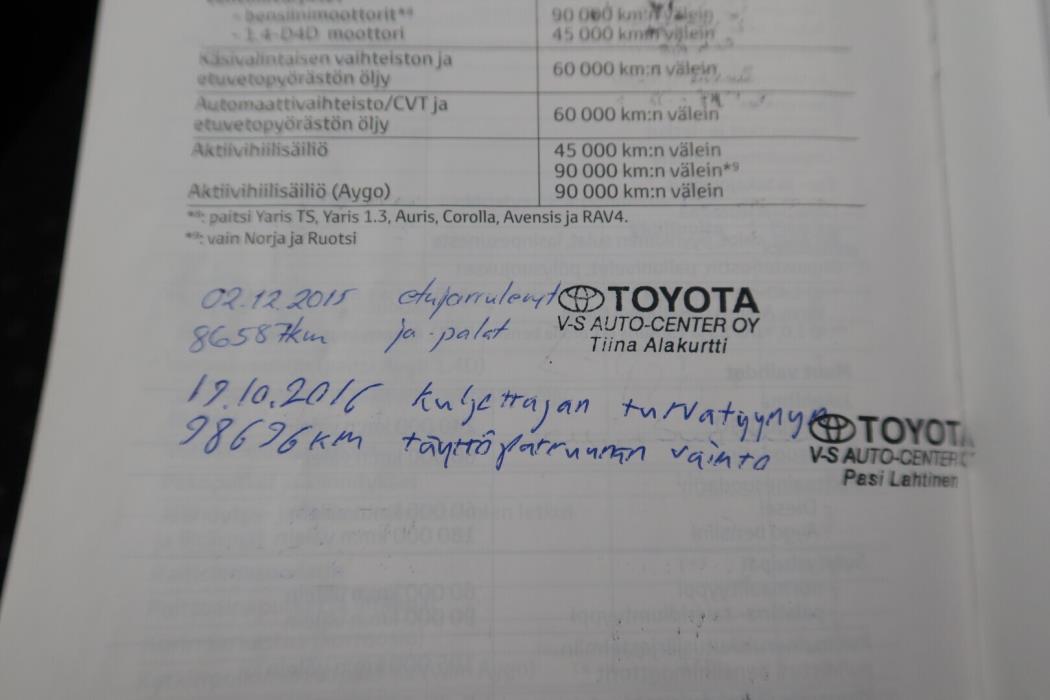 - bensiinimoottorit*⁸ 90 000 km:n välein
- 1.4 D4D moottori 45 000 km:n välein
Käsivalintaisen vaihteiston ja
etuvetopyörästön öljy 60 000 km:n välein
Automaattivaihteisto/CVT ja
etuvetopyörästön öljy 60 000 km:n välein
Aktiivihiilisäiliö 45 000 km:n välein
90 000 km:n välein*⁹
Aktiivihiilisäiliö (Aygo) 90 000 km:n välein
*⁸: paitsi Yaris TS, Yaris 1.3, Auris, Corolla, Avensis ja RAV4.
*⁹: vain Norja ja Ruotsi
02.12.2015 etujarrulevyt
86587km ja -palat
TOYOTA
V-S AUTO-CENTER OY
Tiina Alakurtti
19.10.2016 kuljettajan turvatyynyn
98696km täyttöpatruunan vaihto
TOYOTA
V-S AUTO-CENTER
Pasi Lahtinen